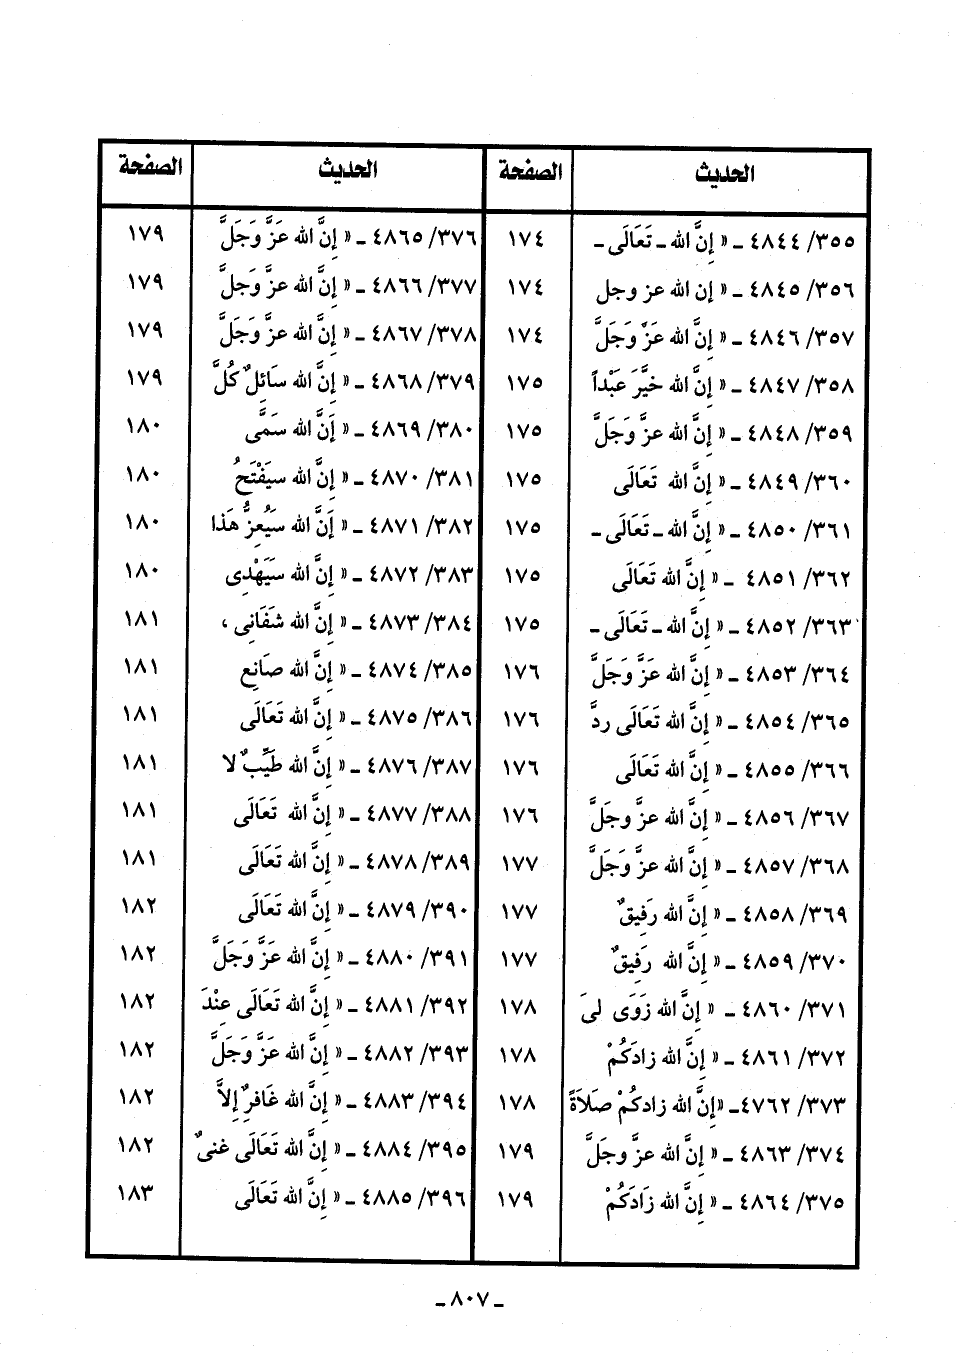 الحديث الصفحة الحديث الصفحة
٣٥٥/ ٤٨٤٤ ـ « إِنَّ الله ـ تَعَالَى ـ ١٧٤ ٣٧٦/ ٤٨٦٥ ـ « إِنَّ الله عَزَّ وَجَلَّ ١٧٩
٣٥٦/ ٤٨٤٥ ـ « إن الله عز وجل ١٧٤ ٣٧٧/ ٤٨٦٦ ـ « إِنَّ الله عزَّ وَجلَّ ١٧٩
٣٥٧/ ٤٨٤٦ ـ « إِنَّ الله عَزَّ وَجَلَّ ١٧٤ ٣٧٨/ ٤٨٦٧ ـ « إِنَّ الله عزَّ وَجَلَّ ١٧٩
٣٥٨/ ٤٨٤٧ ـ « إِنَّ الله خيَّرَ عَبْداً ١٧٥ ٣٧٩/ ٤٨٦٨ ـ « إِنَّ الله سَائِلٌ كُلَّ ١٧٩
٣٥٩/ ٤٨٤٨ ـ « إِنَّ الله عزَّ وَجَلَّ ١٧٥ ٣٨٠/ ٤٨٦٩ ـ « إَنَّ الله سَمَّى ١٨٠
٣٦٠/ ٤٨٤٩ ـ « إِنَّ الله تَعَالَى ١٧٥ ٣٨١/ ٤٨٧٠ ـ « إِنَّ الله سيَفْتَحُ ١٨٠
٣٦١/ ٤٨٥٠ ـ « إِنَّ الله ـ تَعَالَى ـ ١٧٥ ٣٨٢/ ٤٨٧١ ـ « إَنَّ الله سَيُعِزُّ هَذا ١٨٠
٣٦٢/ ٤٨٥١ ـ « إِنَّ الله تَعَالَى ١٧٥ ٣٨٣/ ٤٨٧٢ ـ « إِنَّ الله سَيَهْدِى ١٨٠
٣٦٣/ ٤٨٥٢ ـ « إِنَّ الله ـ تَعَالَى ـ ١٧٥ ٣٨٤/ ٤٨٧٣ ـ « إِنَّ الله شَفَانِى ، ١٨١
٣٦٤/ ٤٨٥٣ ـ « إِنَّ الله عَزَّ وَجَلَّ ١٧٦ ٣٨٥/ ٤٨٧٤ ـ « إِنَّ الله صَانِع ١٨١
٣٦٥/ ٤٨٥٤ ـ « إِنَّ الله تَعَالَى ردَّ ١٧٦ ٣٨٦/ ٤٨٧٥ ـ « إِنَّ الله تَعَالَى ١٨١
٣٦٦/ ٤٨٥٥ ـ « إِنَّ الله تَعَالَى ١٧٦ ٣٨٧/ ٤٨٧٦ ـ « إِنَّ الله طَيِّبٌ لا ١٨١
٣٦٧/ ٤٨٥٦ ـ « إِنَّ الله عزَّ وجلَّ ١٧٦ ٣٨٨/ ٤٨٧٧ ـ « إِنَّ الله تَعَالَى ١٨١
٣٦٨/ ٤٨٥٧ ـ « إِنَّ الله عزَّ وَجَلَّ ١٧٧ ٣٨٩/ ٤٨٧٨ ـ « إِنَّ الله تَعَالَى ١٨١
٣٦٩/ ٤٨٥٨ ـ « إِنَّ الله رَفِيقٌ ١٧٧ ٣٩٠/ ٤٨٧٩ ـ « إِنَّ الله تَعَالَى ١٨٢
٣٧٠/ ٤٨٥٩ ـ « إِنَّ الله رَفِيقٌ ١٧٧ ٣٩١/ ٤٨٨٠ ـ « إِنَّ الله عَزَّ وَجَلَّ ١٨٢
٣٧١/ ٤٨٦٠ ـ « إِنَّ الله زَوَى لىَ ١٧٨ ٣٩٢/ ٤٨٨١ ـ « إِنَّ الله تَعَالَى عِنْدَ ١٨٢
٣٧٢/ ٤٨٦١ ـ « إِنَّ الله زادَكُمْ ١٧٨ ٣٩٣/ ٤٨٨٢ ـ « إِنَّ الله عَزَّ وَجَلَّ ١٨٢
٣٧٣/ ٤٧٦٢ـ «إِنَّ الله زادكُمْ صَلَاةً ١٧٨ ٣٩٤/ ٤٨٨٣ ـ « إِنَّ الله غَافرٌ إِلاَّ ١٨٢
٣٧٤/ ٤٨٦٣ ـ « إِنَّ الله عزَّ وجَلَّ ١٧٩ ٣٩٥/ ٤٨٨٤ ـ « إِنَّ الله تَعَالَى غنىٌ ١٨٢
٣٧٥/ ٤٨٦٤ ـ « إِنَّ الله زَادَكُمْ ١٧٩ ٣٩٦/ ٤٨٨٥ ـ « إِنَّ الله تَعَالَى ١٨٣
ـ ٨٠٧ ـ